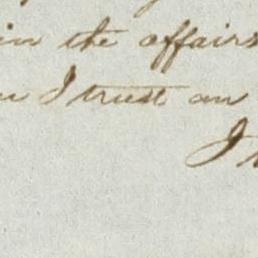 in the affairs
I trust an
I